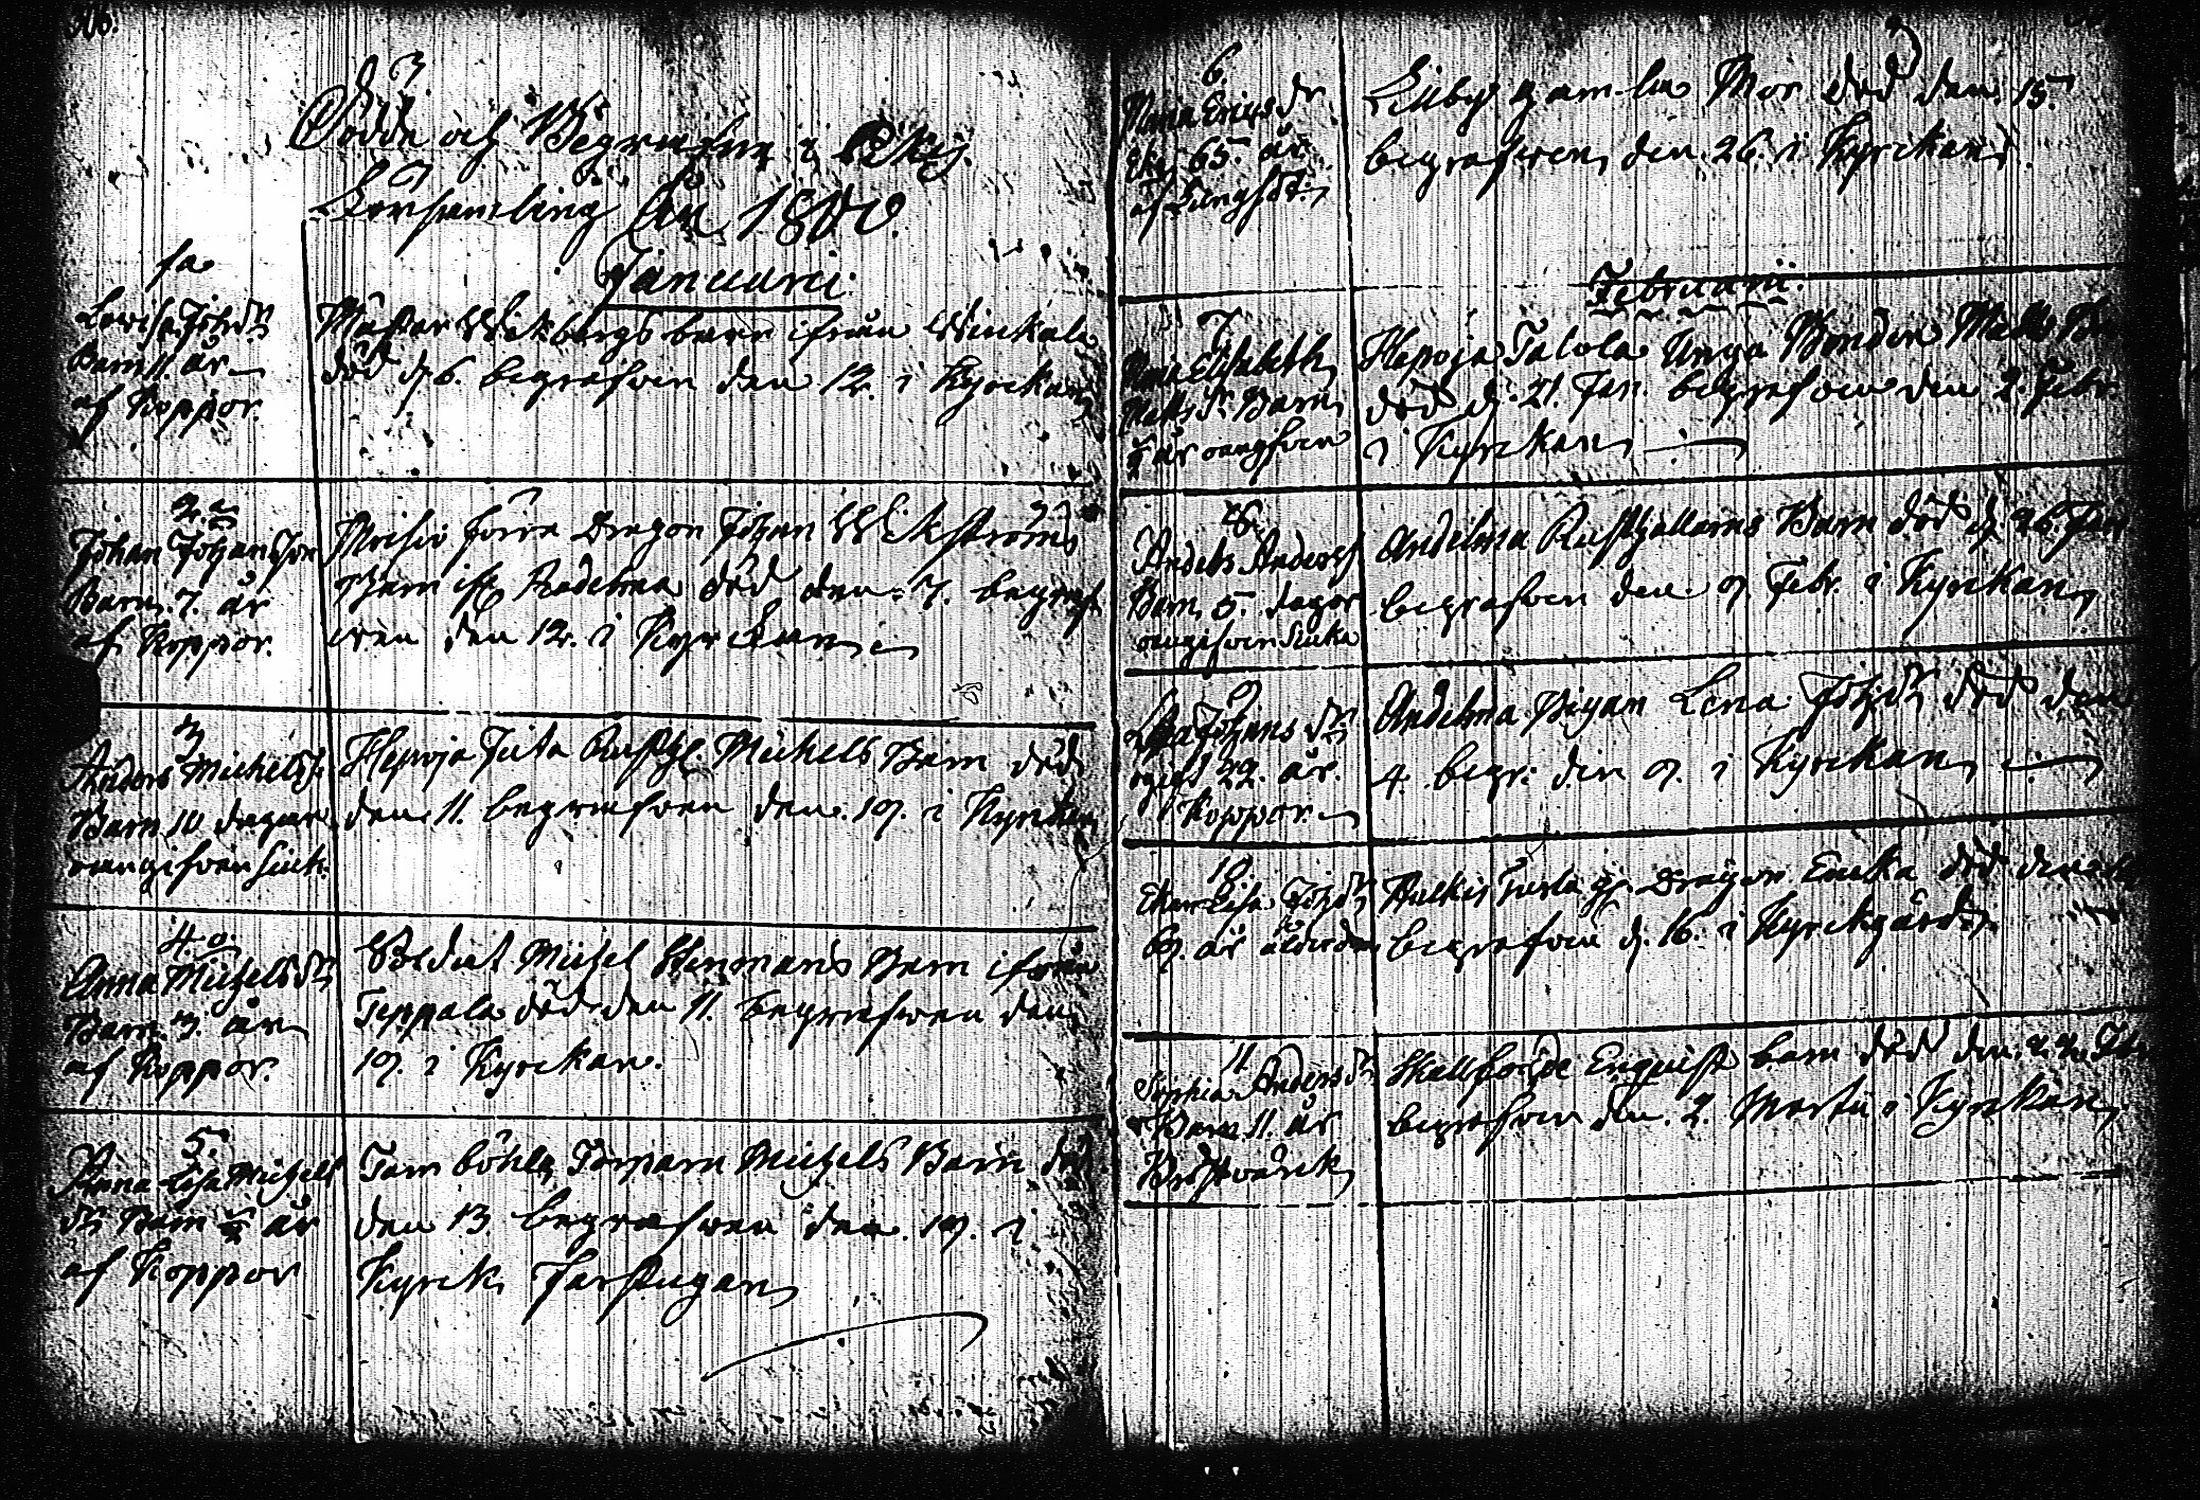 Döde och Begrafne i
Församling År 1800.
Januarii
1a
Lovisa Joh. dr
Barn 11. år
af Koppor.
Mästar Wekbergs barn ifrån Winkala
död d. 6. begrafven den 12. i Kyrckan
2.
Johan Johansson
Barn 7. år
af Koppor.
förra Dragon Johan Wekströms
Barn ifr. död den 7. begraf
wen den 12. i Kyrckan
3
Anders Michelss.
Barn 10 dagar
oangifven siuk.
Hepoja Juta Rusth. Michels Barn död
den 11. begrafven den 19. i Kyrckan
4.
Anna Michelsdr
Barn 3. år
af Koppor.
Soldat Michel Stenmans Barn ifrån
Seppala död den 11. begrafwen den
19. i Kyrckan.
5.
Anna Lisa Michels
dr Barn ½ år
af Koppor
Torparn Michels Barn död
den 13 begrafwen den 19. i
Kyrck Farstugan
6.
Maria Ericsdr
Enk. 65. år
af Lungsot.
gamla Mor död den 15.
begrafwen den 26. i Kyrckan.
Februarii.
7
Maria Elisabeth
Matts dr Barn
½ år oangifven
Hepoja Talola Unga Bonden Matts
död d. 21. Jan. begrafven den 2. Febr.
i Kyrckan
8.
Anders Anderss
Barn 5. dagar
oangifven siuka
Andelma Rusthållarens Barn död d. 26. Jan
begrafven den 9 Febr. i Kyrckan
9
Johans dr
ogift 22. år.
Koppor.
Andelma Pigan Lena Joh. dr död den
4. begr. den 9. i Kyrckan
10.
Enkan Lisa Joh. dr
69. år ålderdom
Dragon Enka död den
begrafven d. 16. i Kyrckgård.
11
Sophia Anders dr
Barn 11. år
Bröstwärck
Enquist barn död den 22. Feb
begrafven den 2. Martii i Kyrckan.